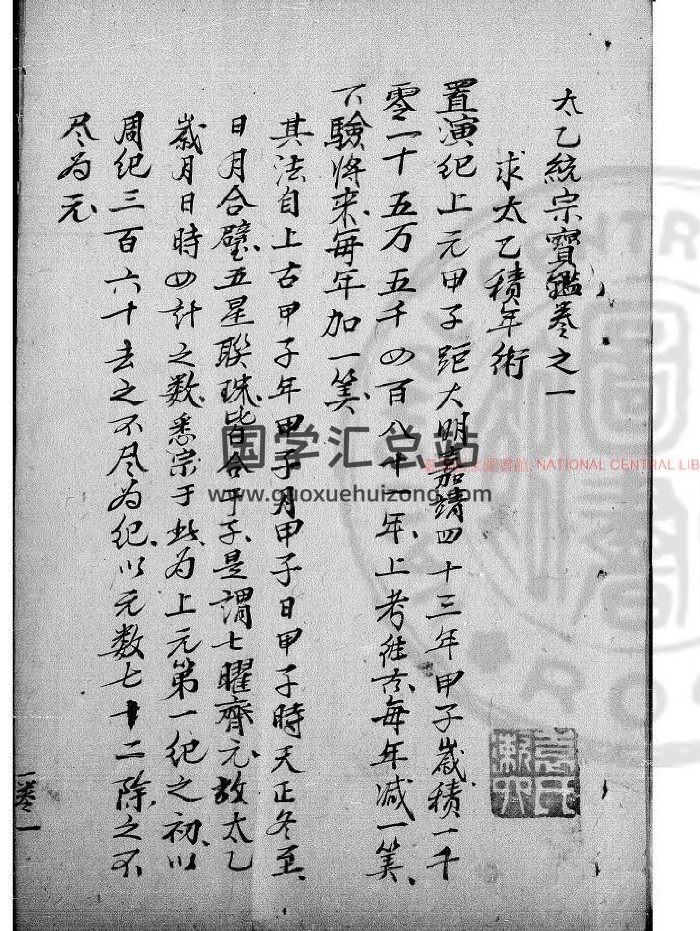 太乙統宗寶鑑卷之一
求太乙積年術
置演紀上元甲子距大明嘉靖四十三年甲子歲積一千
零一十五万五千四百八十一年上考往古每年减一筭
下驗將来每年加一筭
其法自上古甲子年甲子月甲子日甲子時天正冬至
日月合璧五星聯珠皆合于子是謂七曜齊元故太乙
歲月日時四計之数悉宗于此為上元第一紀之初以
周紀三百六十去之不尽为紀以元数七十二除之不
尽为元
卷一
国学汇总站
www.guoxuehuizong.com
NATIONAL CENTRAL LIB